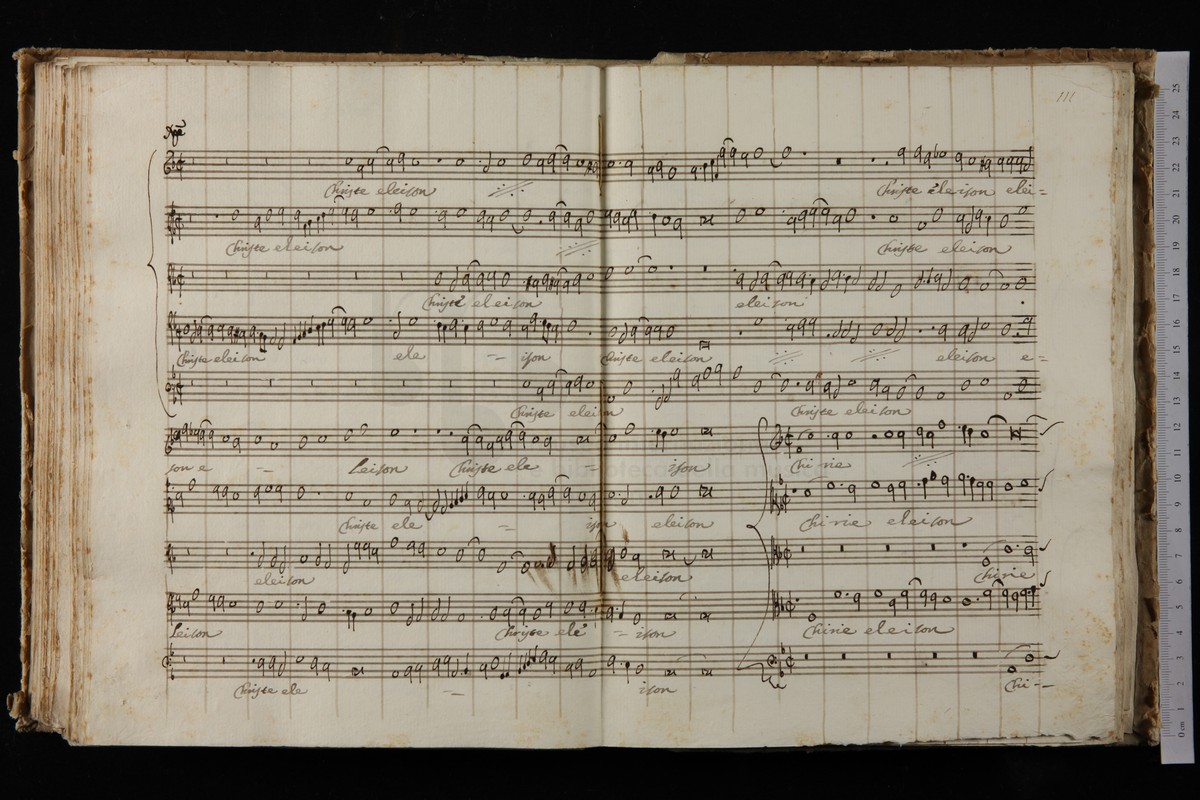 111
Christe eleison Christe eleison elei=
Christe eleison Christe eleison
Christe eleison eleison
Christe eleison ele - ison Christe eleison eleison e=
Christe eleison Christe eleison
son e - Leison Christe ele - ison Chi rie
Christe ele - ison eleison Chirie eleison
eleison eleison Chirie
Leison Christe ele - ison Chirie eleison
Christe ele - ison Chi-